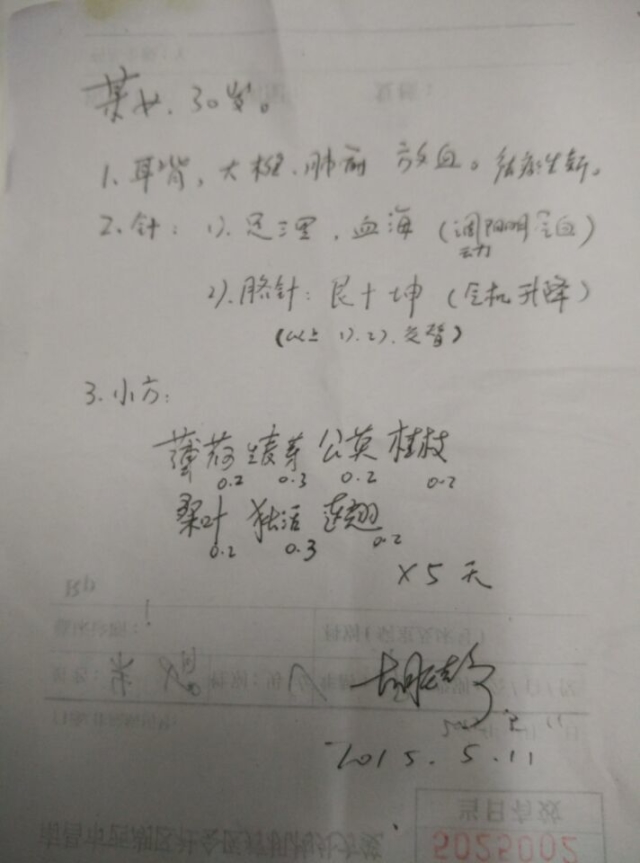 某女、30岁。
1、耳背，大椎、肺俞 放血。祛瘀生新。
2、针：1）、足三里，血海（调阳明气血）
动力
2）、脐针：艮十坤（气机升降）
（以上 1）、2）、交替）
3、小方：
薄荷 麦芽 公英 桂枝
0.2 0.3 0.2 0.2
桑叶 独活 连翘
0.2 0.3 0.2
×5天
2015.5.11